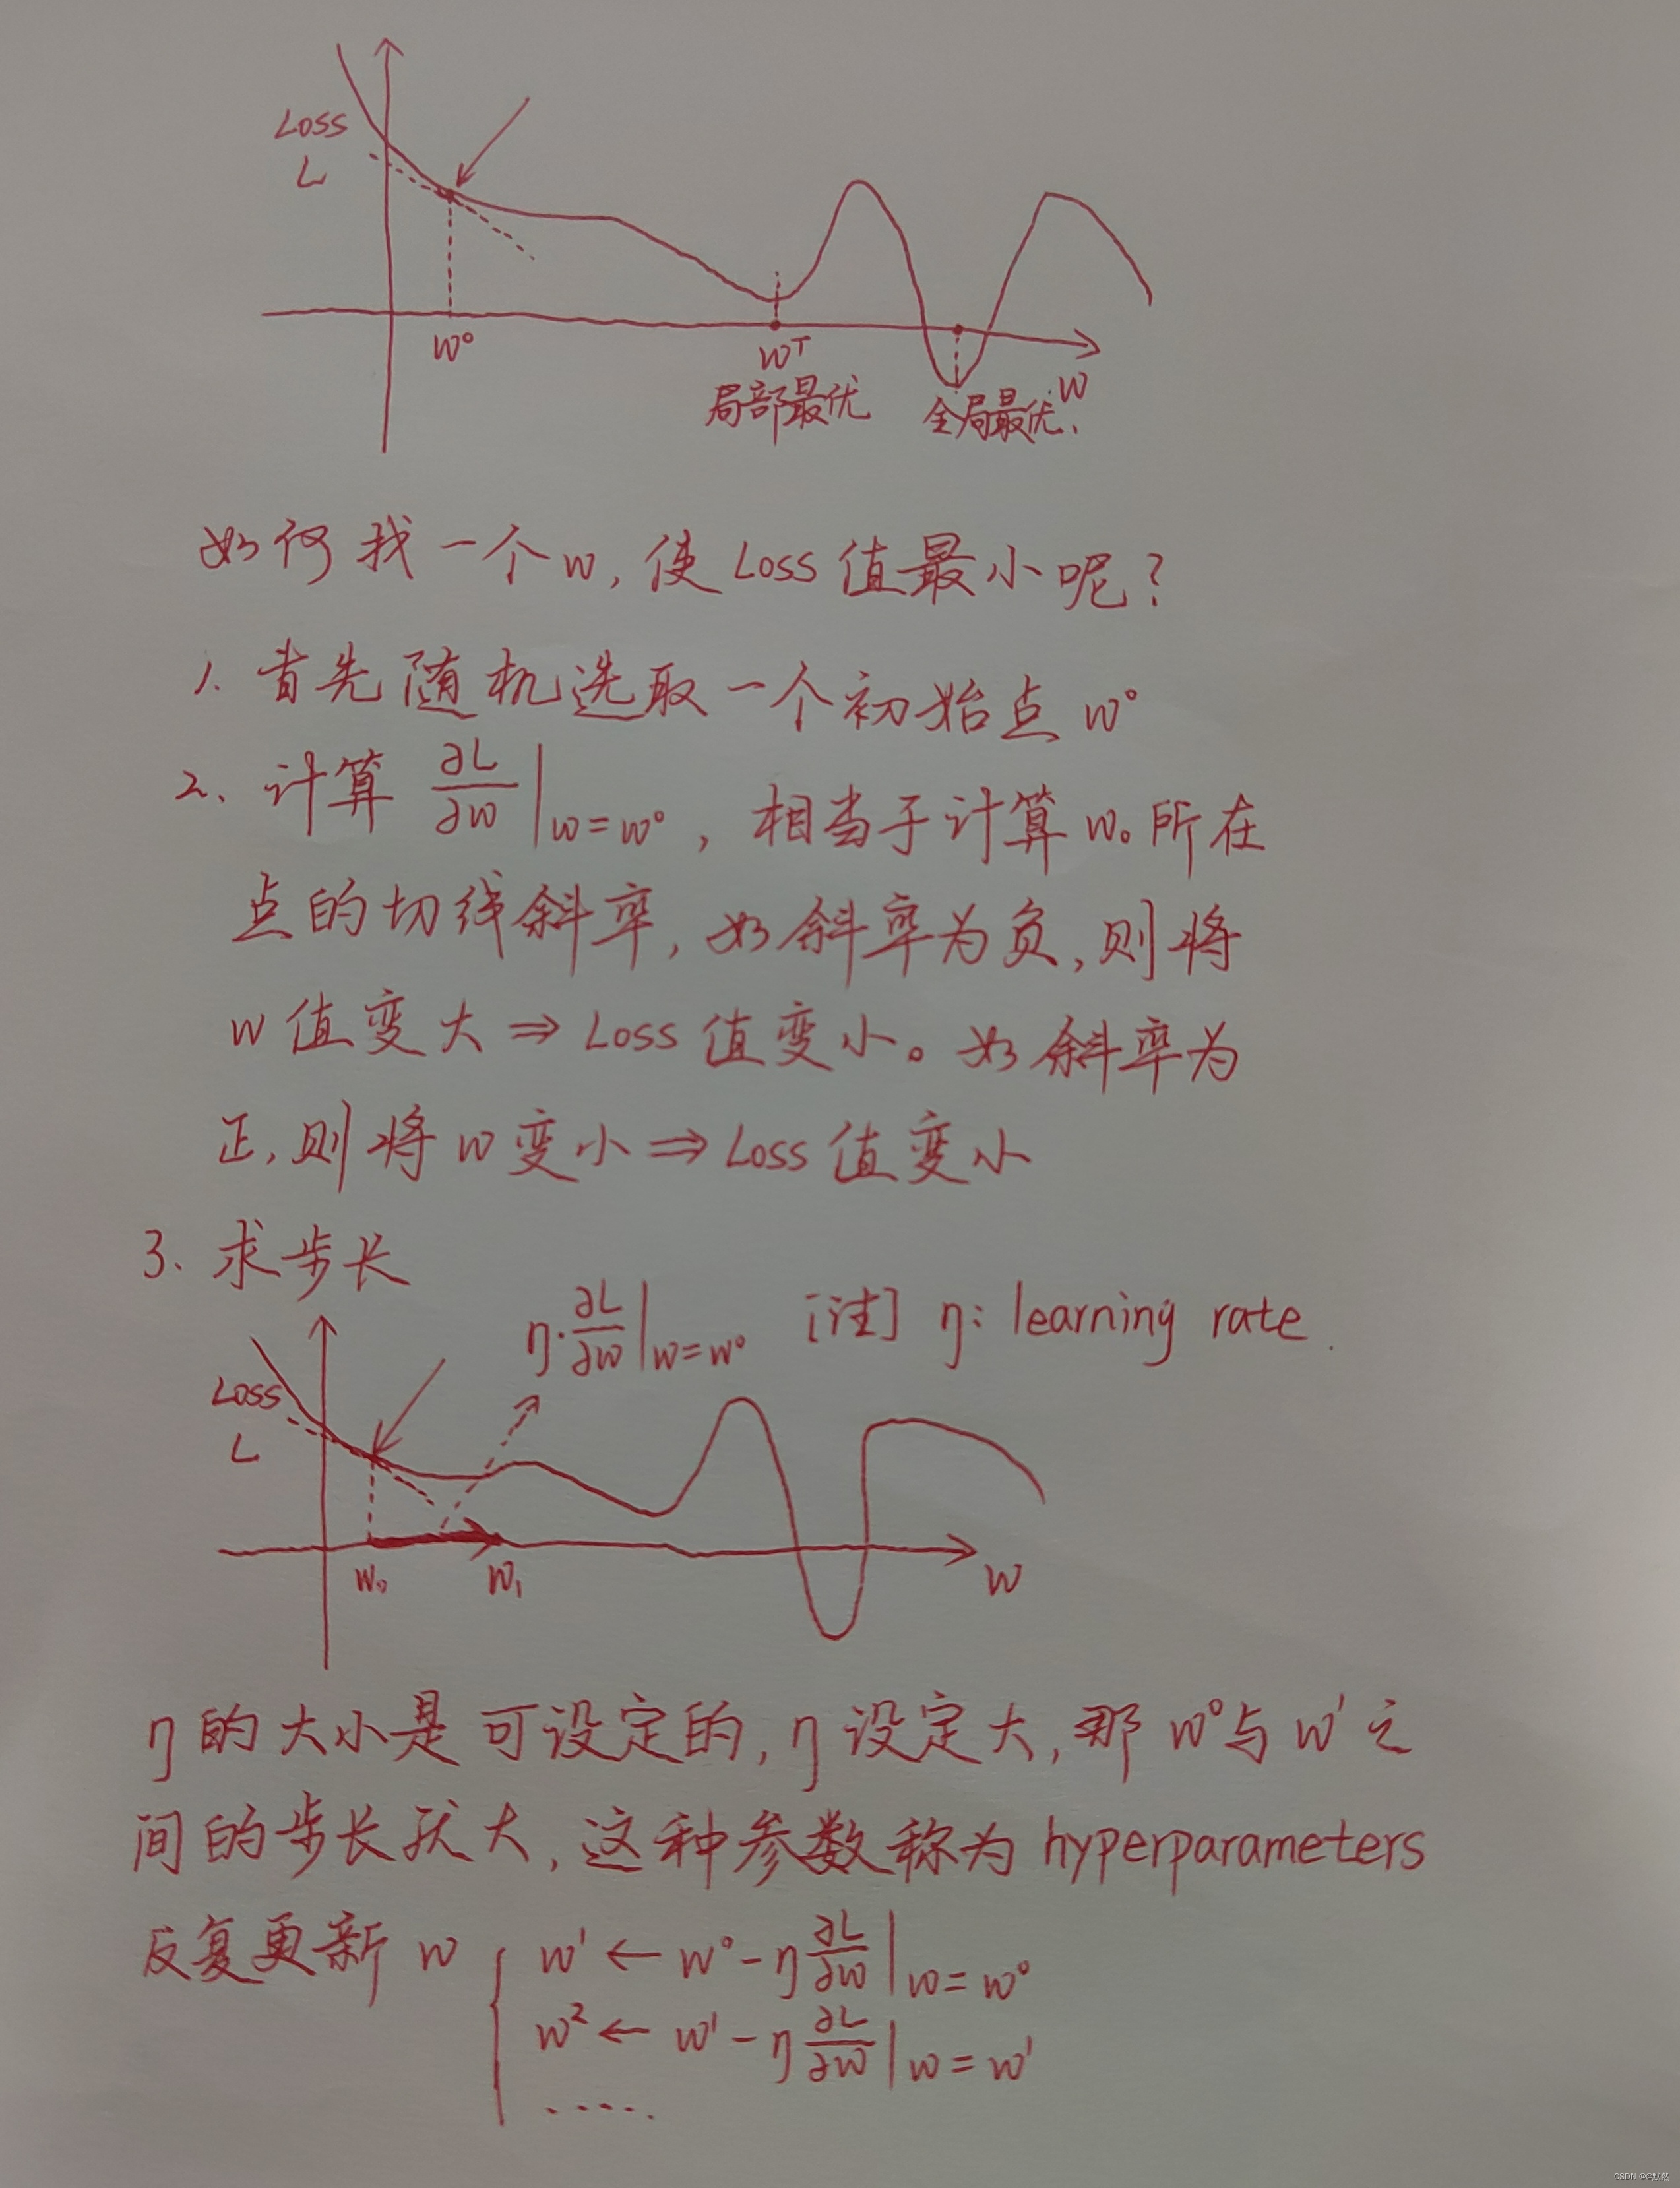 Loss
L
w⁰
wᵀ
w
局部最优
全局最优.
如何找一个w,使Loss值最小呢?
1. 首先随机选取一个初始点w⁰
2、计算 ∂L/∂w|w=w⁰,相当于计算w₀所在
点的切线斜率,如斜率为负,则将
w值变大⇒Loss值变小。如斜率为
正,则将w变小⇒Loss值变小
3、求步长
η·∂L/∂w|w=w⁰ [注] η: learning rate.
Loss
L
w₀
w₁
w
η的大小是可设定的,η设定大,那w⁰与w¹之
间的步长跃大,这种参数称为hyperparameters
反复更新w { w¹ ← w⁰ - η ∂L/∂w|w=w⁰
w² ← w¹ - η ∂L/∂w|w=w¹
.....
CSDN @@默然